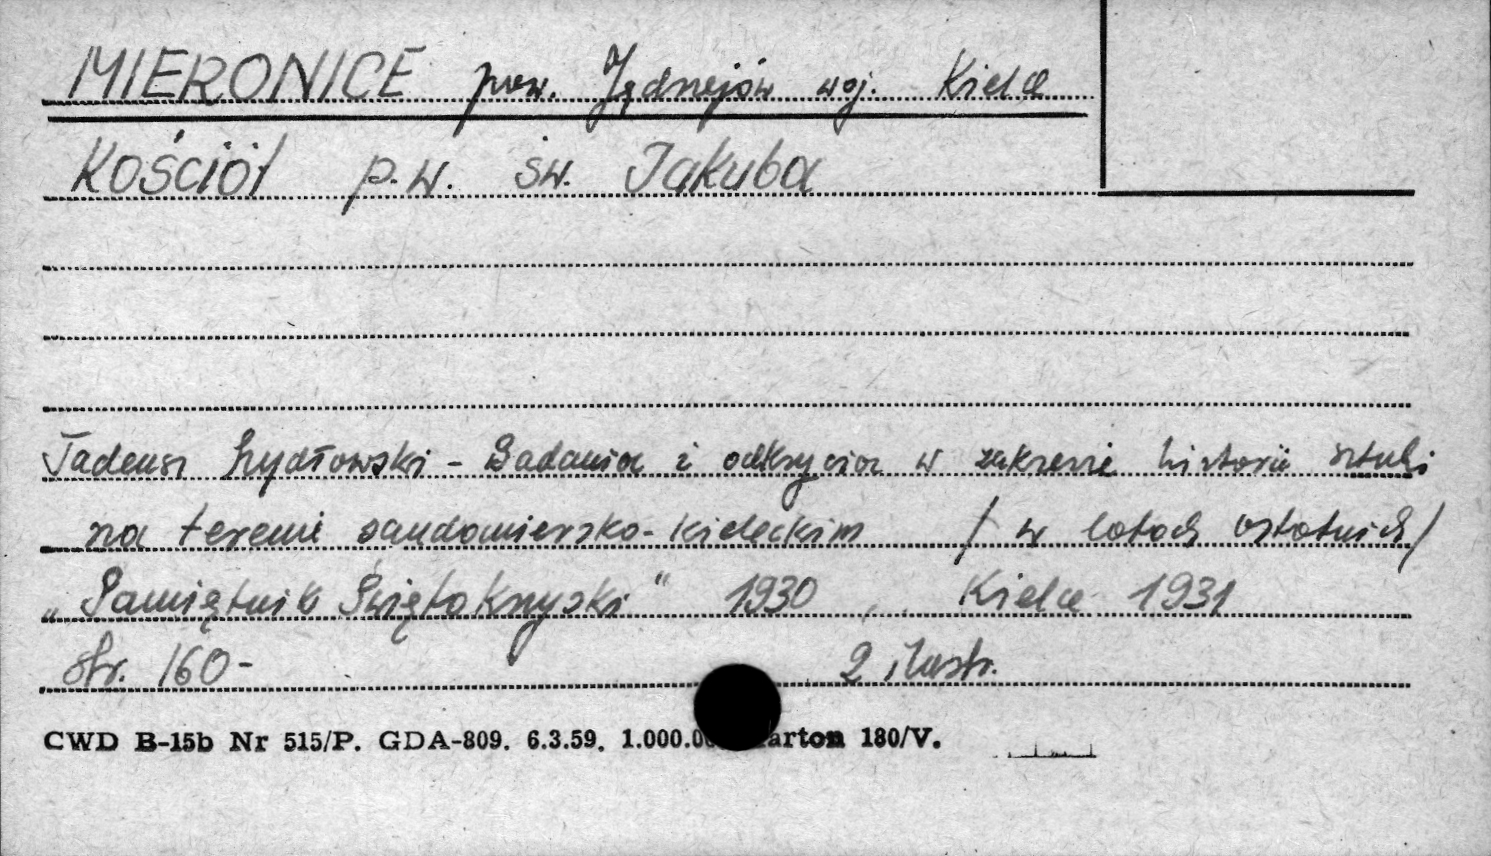 MIERONICE pow. Jędrzejów woj. Kielce
Kościół p.w. św. Jakuba
Tadeusz Szydłowski - Badania i odkrycia w zakresie historii sztuki
na terenie sandomiersko-kieleckim / w latach ostatnich/
„Pamiętnik Świętokrzyski" 1930, Kielce 1931
str. 160- 2 ilustr.
CWD B-15b Nr 515/P. GDA-809. 6.3.59. 1.000.0 arton 180/V.